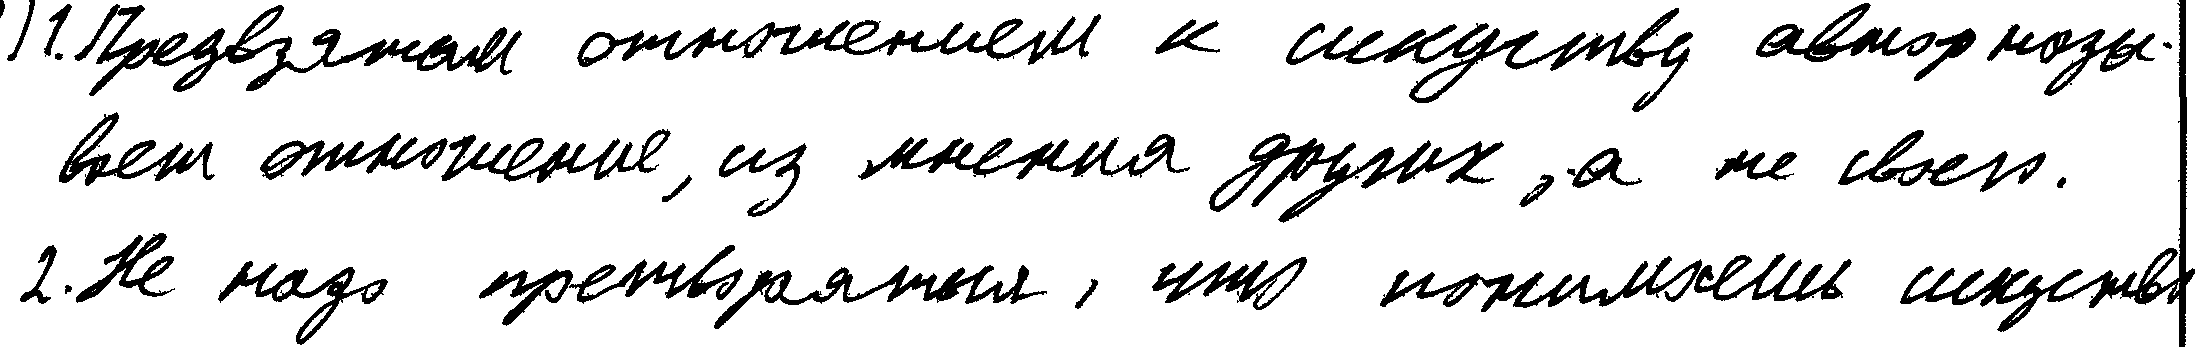 ) 1. Предвзятам отношением к искуству автор назы-
вает отношение, из мнения других, а не своего.
2. Не надо претворяться, что понимаешь искуство